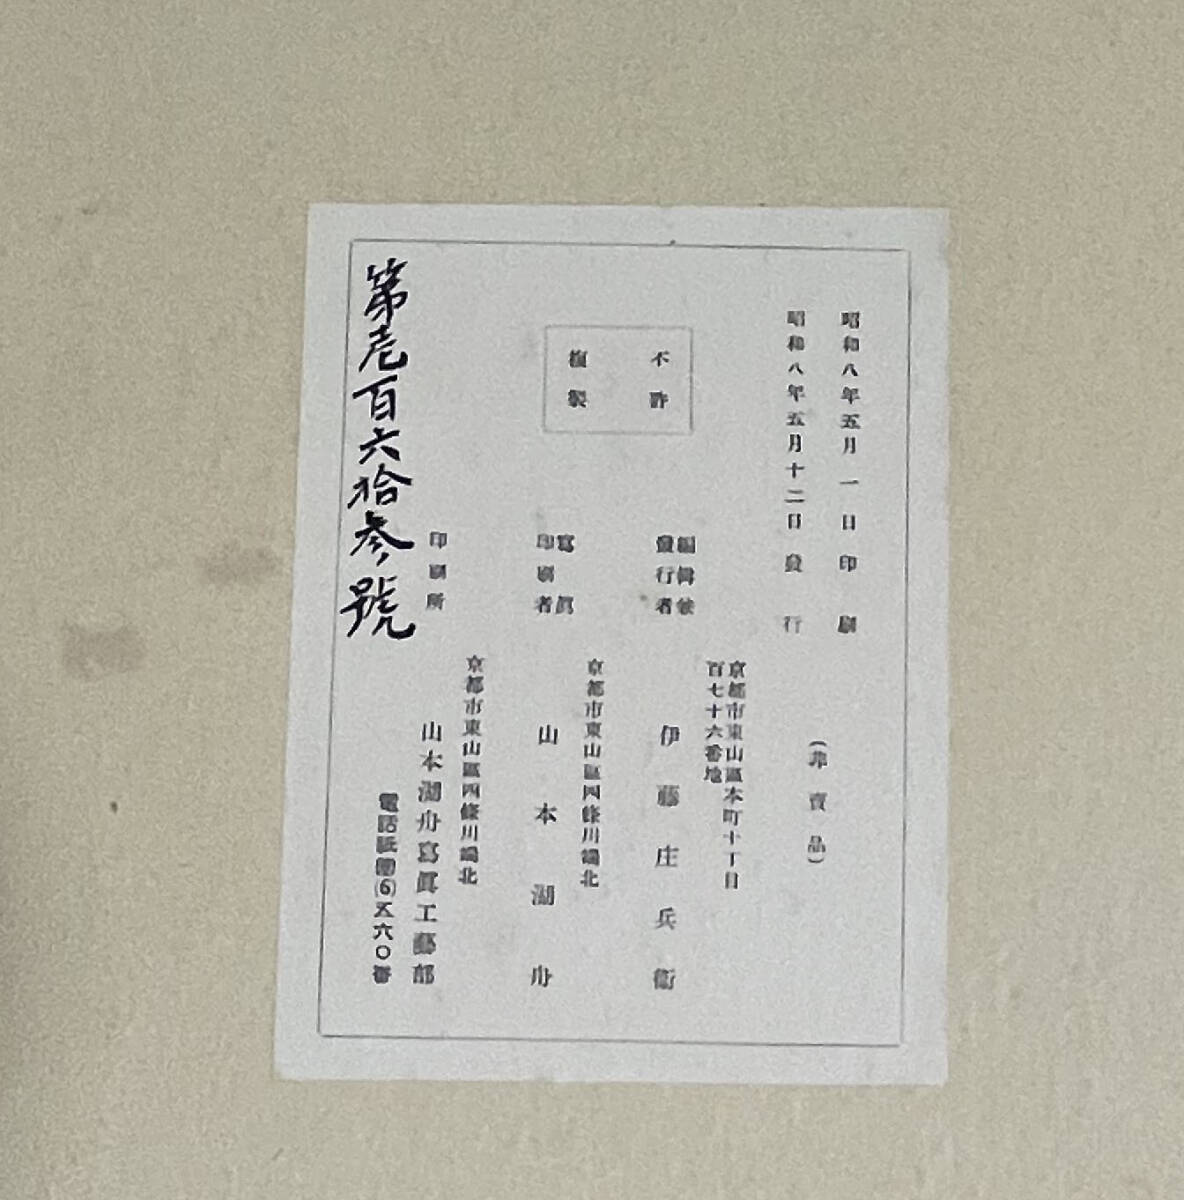 昭和八年五月一日印刷
昭和八年五月十二日發行
(非賣品)
不許
複製
京都市東山區本町十丁目
百七十六番地
編輯兼
發行者
伊藤庄兵衞
京都市東山區四條川端北
寫眞
印刷者
山本湖舟
京都市東山區四條川端北
印刷所
山本湖舟寫眞工藝部
電話祇園(6)五六〇番
第壱百六拾参號